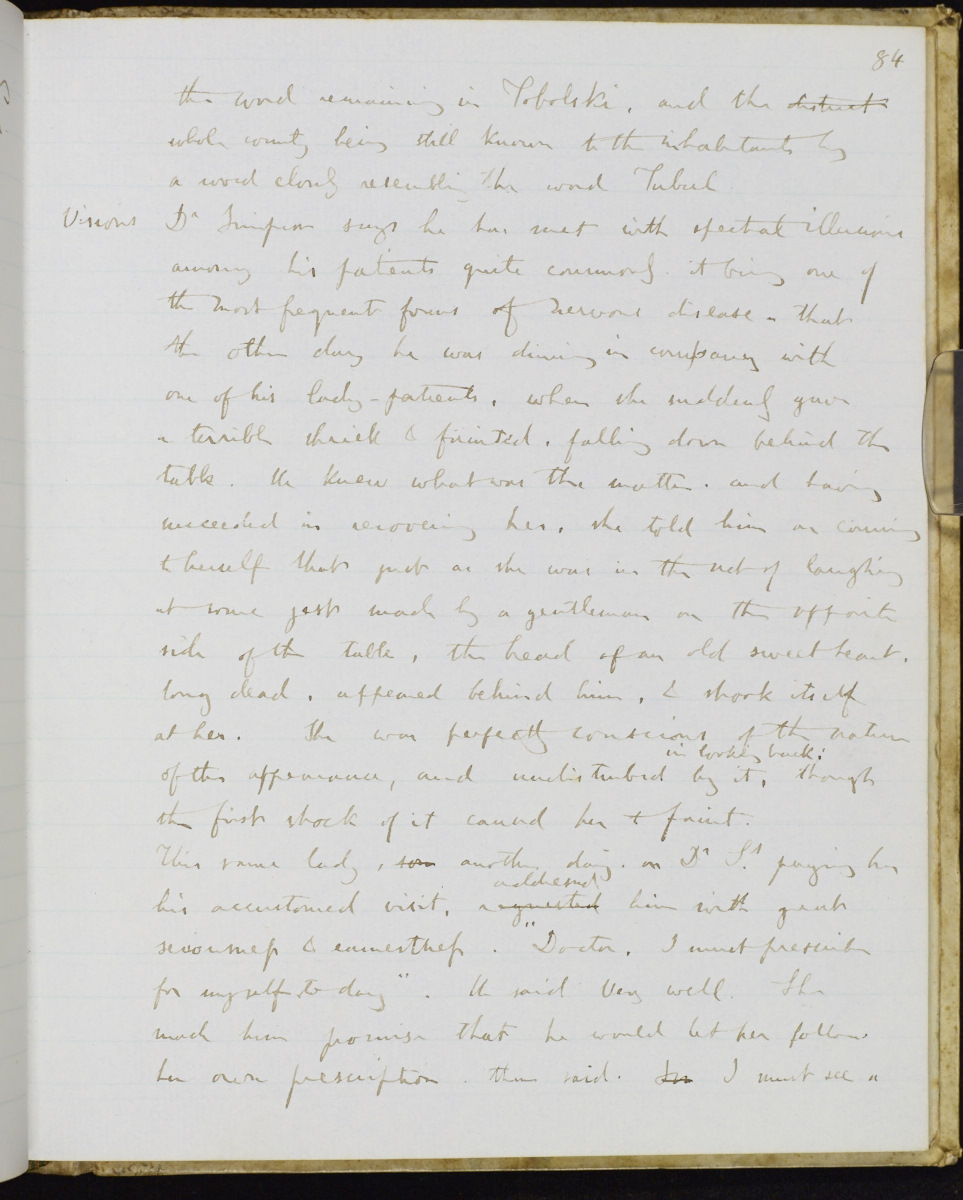 84
the word remaining in Tobolski, and the district
whole county being still known to the inhabitants by
a word closely resembling the word Tubal
Visions Dr Simpson says he has met with spectral illusions
among his patients quite commonly. it being one of
the most frequent forms of nervous disease - that
the other day he was dining in company with
one of his lady-patients, when she suddenly gave
a terrible shriek & fainted, falling down behind the
table. He knew what was the matter. and having
succeeded in recovering her, she told him on coming
to herself that just as she was in the act of laughing
at some jest made by a gentleman on the opposite
side of the table, the head of an old sweetheart,
long dead, appeared behind him, & shook itself
at her. She was perfectly conscious of the nature
in looking back;
of the appearance, and undisturbed by it, though
the first shock of it caused her to faint.
This same lady, son another day. on Dr S's paying her
addressed
his accustomed visit, requested him with great
seriousness & earnestness. "Doctor, I must prescribe
for myself to day". He said Very well. She
made him promise that he would let her follow
her own prescription. then said. I must see a